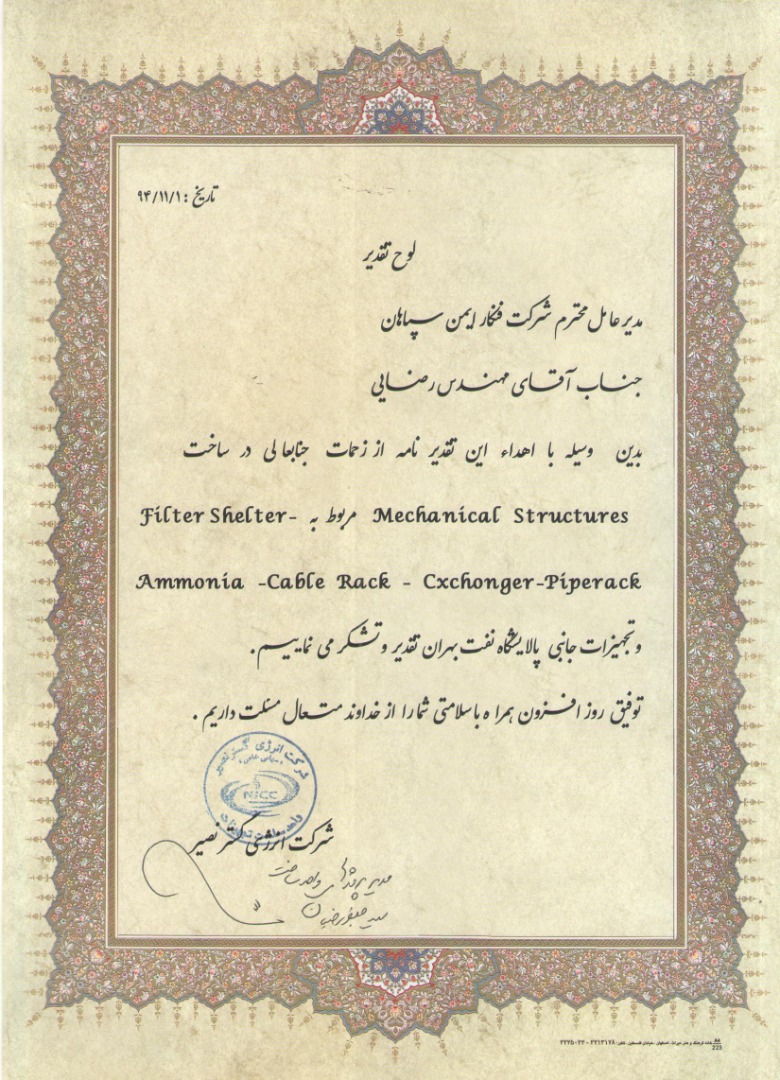 تاریخ : ۹۴/۱۱/۱
لوح تقدیر
مدیر عامل محترم شرکت فنکار ایمن سپاهان
جناب آقای مهندس رضایی
بدین وسیله با اهداء این تقدیر نامه از زحمات جنابعالی در ساخت
Mechanical Structures مربوط به Filter Shelter-
Ammonia -Cable Rack - Cxchonger-Piperack
و تجهیزات جانبی پالایشگاه نفت بهران تقدیر و تشکر می نماییم.
توفیق روز افزون همراه با سلامتی شما را از خداوند متعال مسئلت داریم .
شرکت انرژی گستر نصیر
(سهامی خاص)
NICC
شرکت انرژی گستر نصیر
مدیر پروژه های واحد ساخت
سید
223